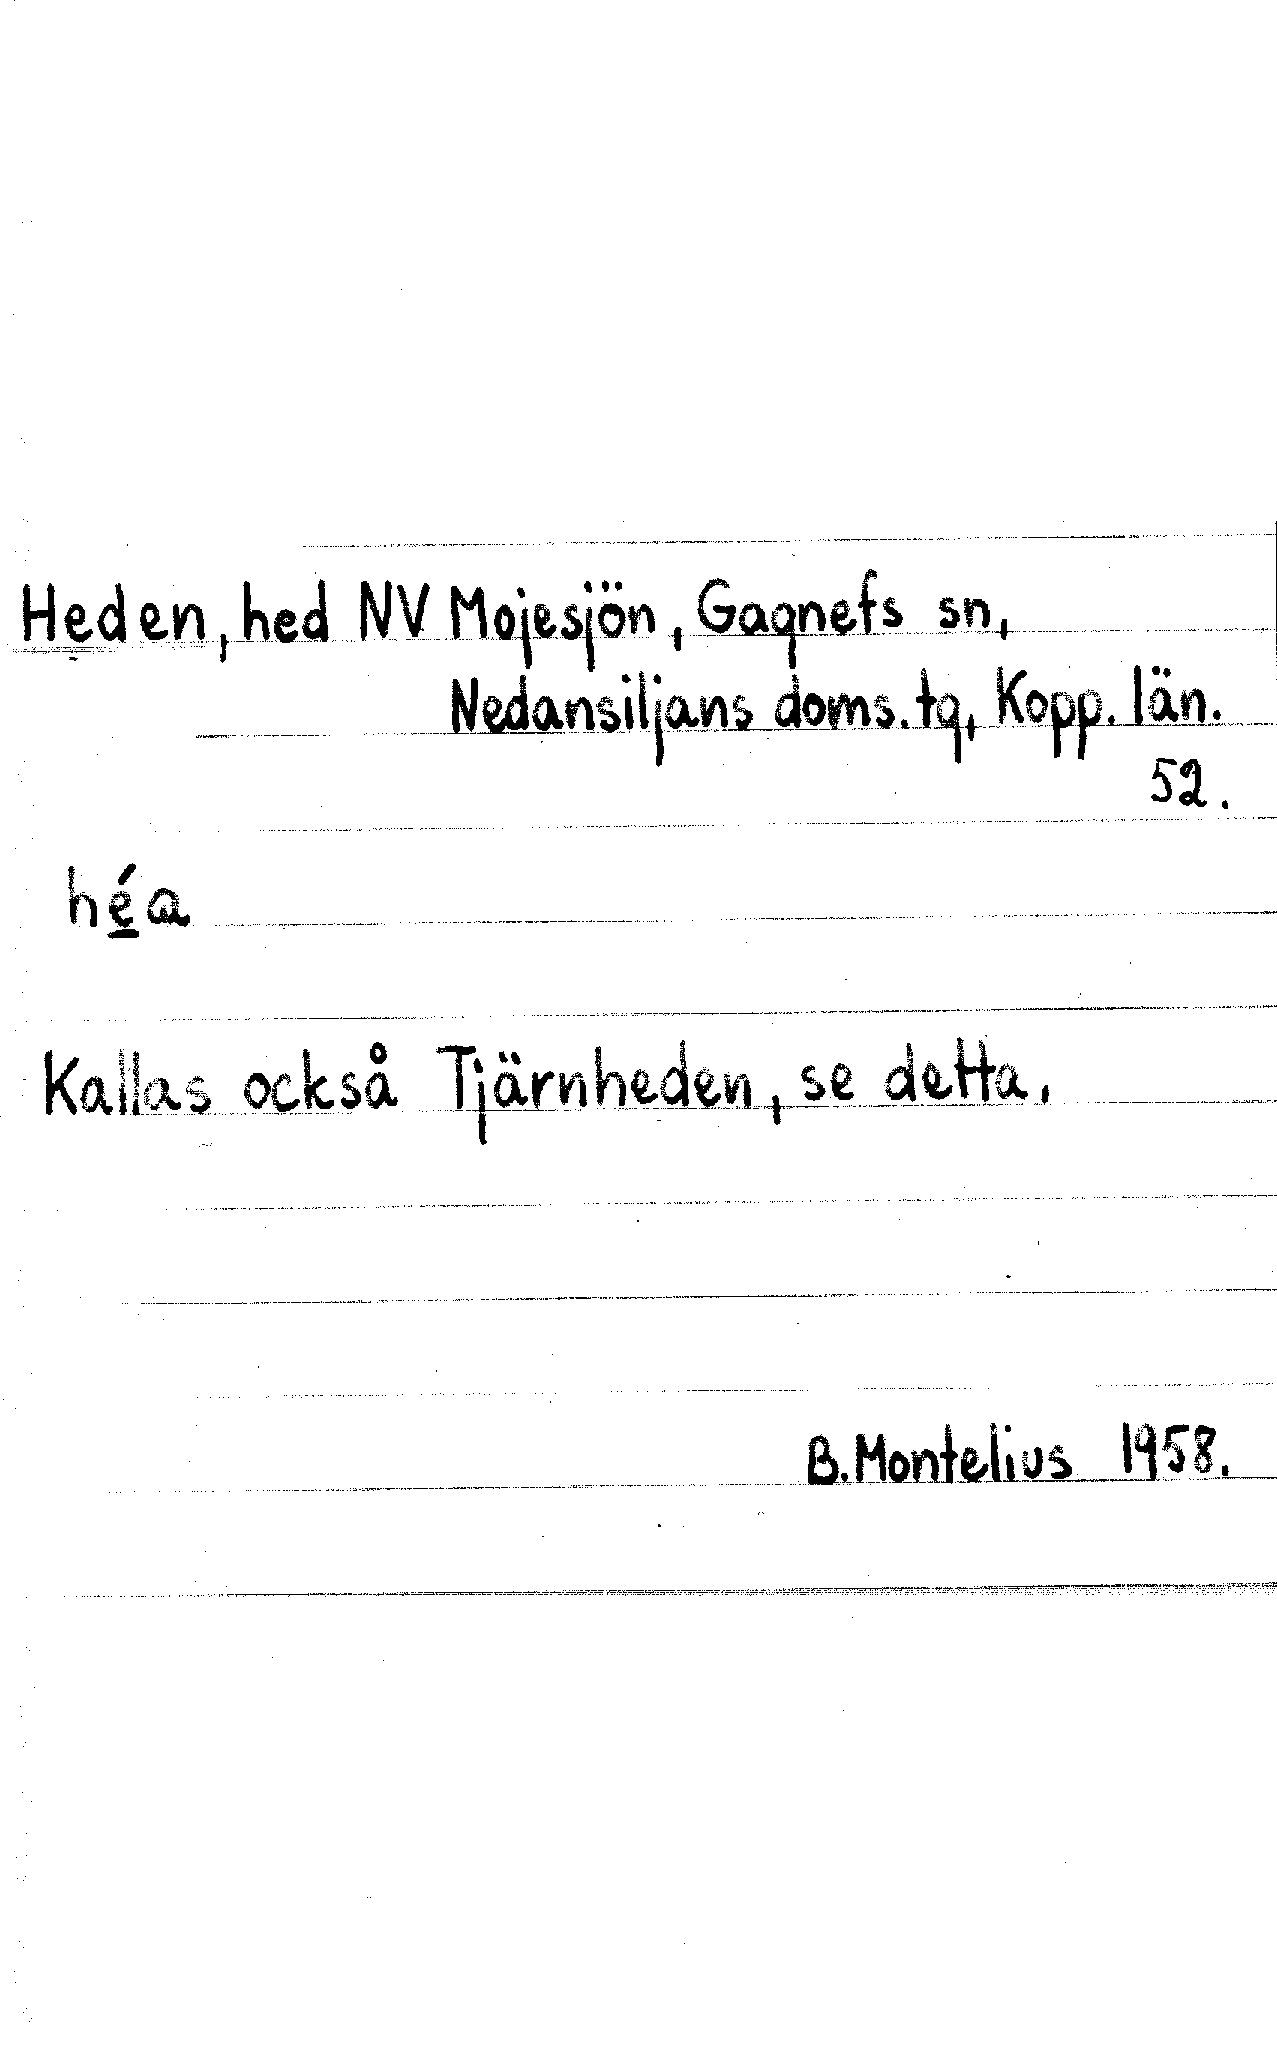 Heden, hed NV Mojesjön, Gagnefs sn,
Nedansiljans doms.tg, Kopp. län.
52.
hé̲a
Kallas också Tjärnheden, se detta.
B.Montelius 1958.